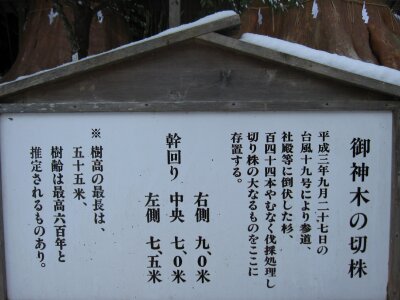 御神木の切株
平成三年九月二十七日の
台風十九号により参道、
社殿等に倒伏した杉、
百四十四本やむなく伐採処理し
切り株の大なるものをここに
存置する。
幹回り
右側 九、〇米
中央 七、〇米
左側 七、五米
※ 樹高の最長は、
五十五米、
樹齢は最高六百年と
推定されるものあり。